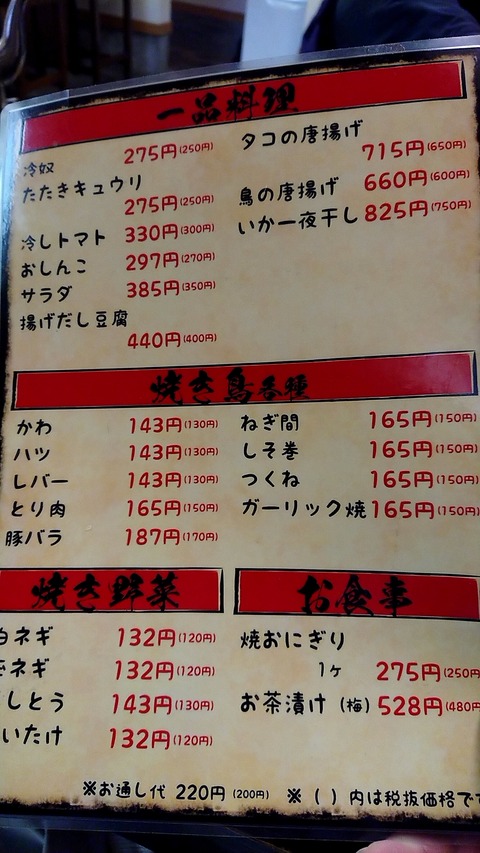 一品料理
冷奴 275円(250円)
たたきキュウリ
275円(250円)
冷しトマト 330円(300円)
おしんこ 297円(270円)
サラダ 385円(350円)
揚げだし豆腐
440円(400円)
タコの唐揚げ
715円(650円)
鳥の唐揚げ 660円(600円)
いか一夜干し 825円(750円)
焼き鳥各種
かわ 143円(130円)
ハツ 143円(130円)
レバー 143円(130円)
とり肉 165円(150円)
豚バラ 187円(170円)
ねぎ間 165円(150円)
しそ巻 165円(150円)
つくね 165円(150円)
ガーリック焼 165円(150円)
焼き野菜
白ネギ 132円(120円)
ネギ 132円(120円)
しとう 143円(130円)
いたけ 132円(120円)
お食事
焼おにぎり
1ヶ 275円(250円)
お茶漬け (梅) 528円(480円)
※お通し代 220円(200円) ※( )内は税抜価格で